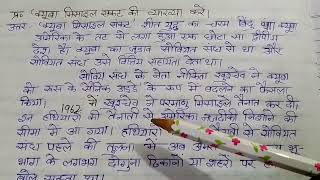 प्र० क्यूबा मिसाइल संकट की व्याख्या करें।
उत्तर क्यूबा मिसाइल संकट शीत युद्ध का चरम बिंदु था। क्यूबा
अमेरिका के तट से लगा हुआ एक छोटा सा द्वीपीय
देश है। क्यूबा का जुड़ाव सोवियत संघ से था और
सोवियत संघ उसे वित्तीय सहायता देता था।
सोवियत संघ के नेता नीकिता ख्रुश्चेव ने क्यूबा
को रूस के सैनिक अड्डे के रूप में बदलने का फैसला
किया। 1962 में ख्रुश्चेव ने परमाणु मिसाइलें तैनात कर दी।
इन हथियारों की तैनाती से अमेरिका नजदीकी निशाने की
सीमा में आ गया। हथियारों की तैनाती से सोवियत
संघ पहले की तुलना में अब
भाग के लगभग दोगुने ठिकानों या शहरों पर
बोल सकता था।